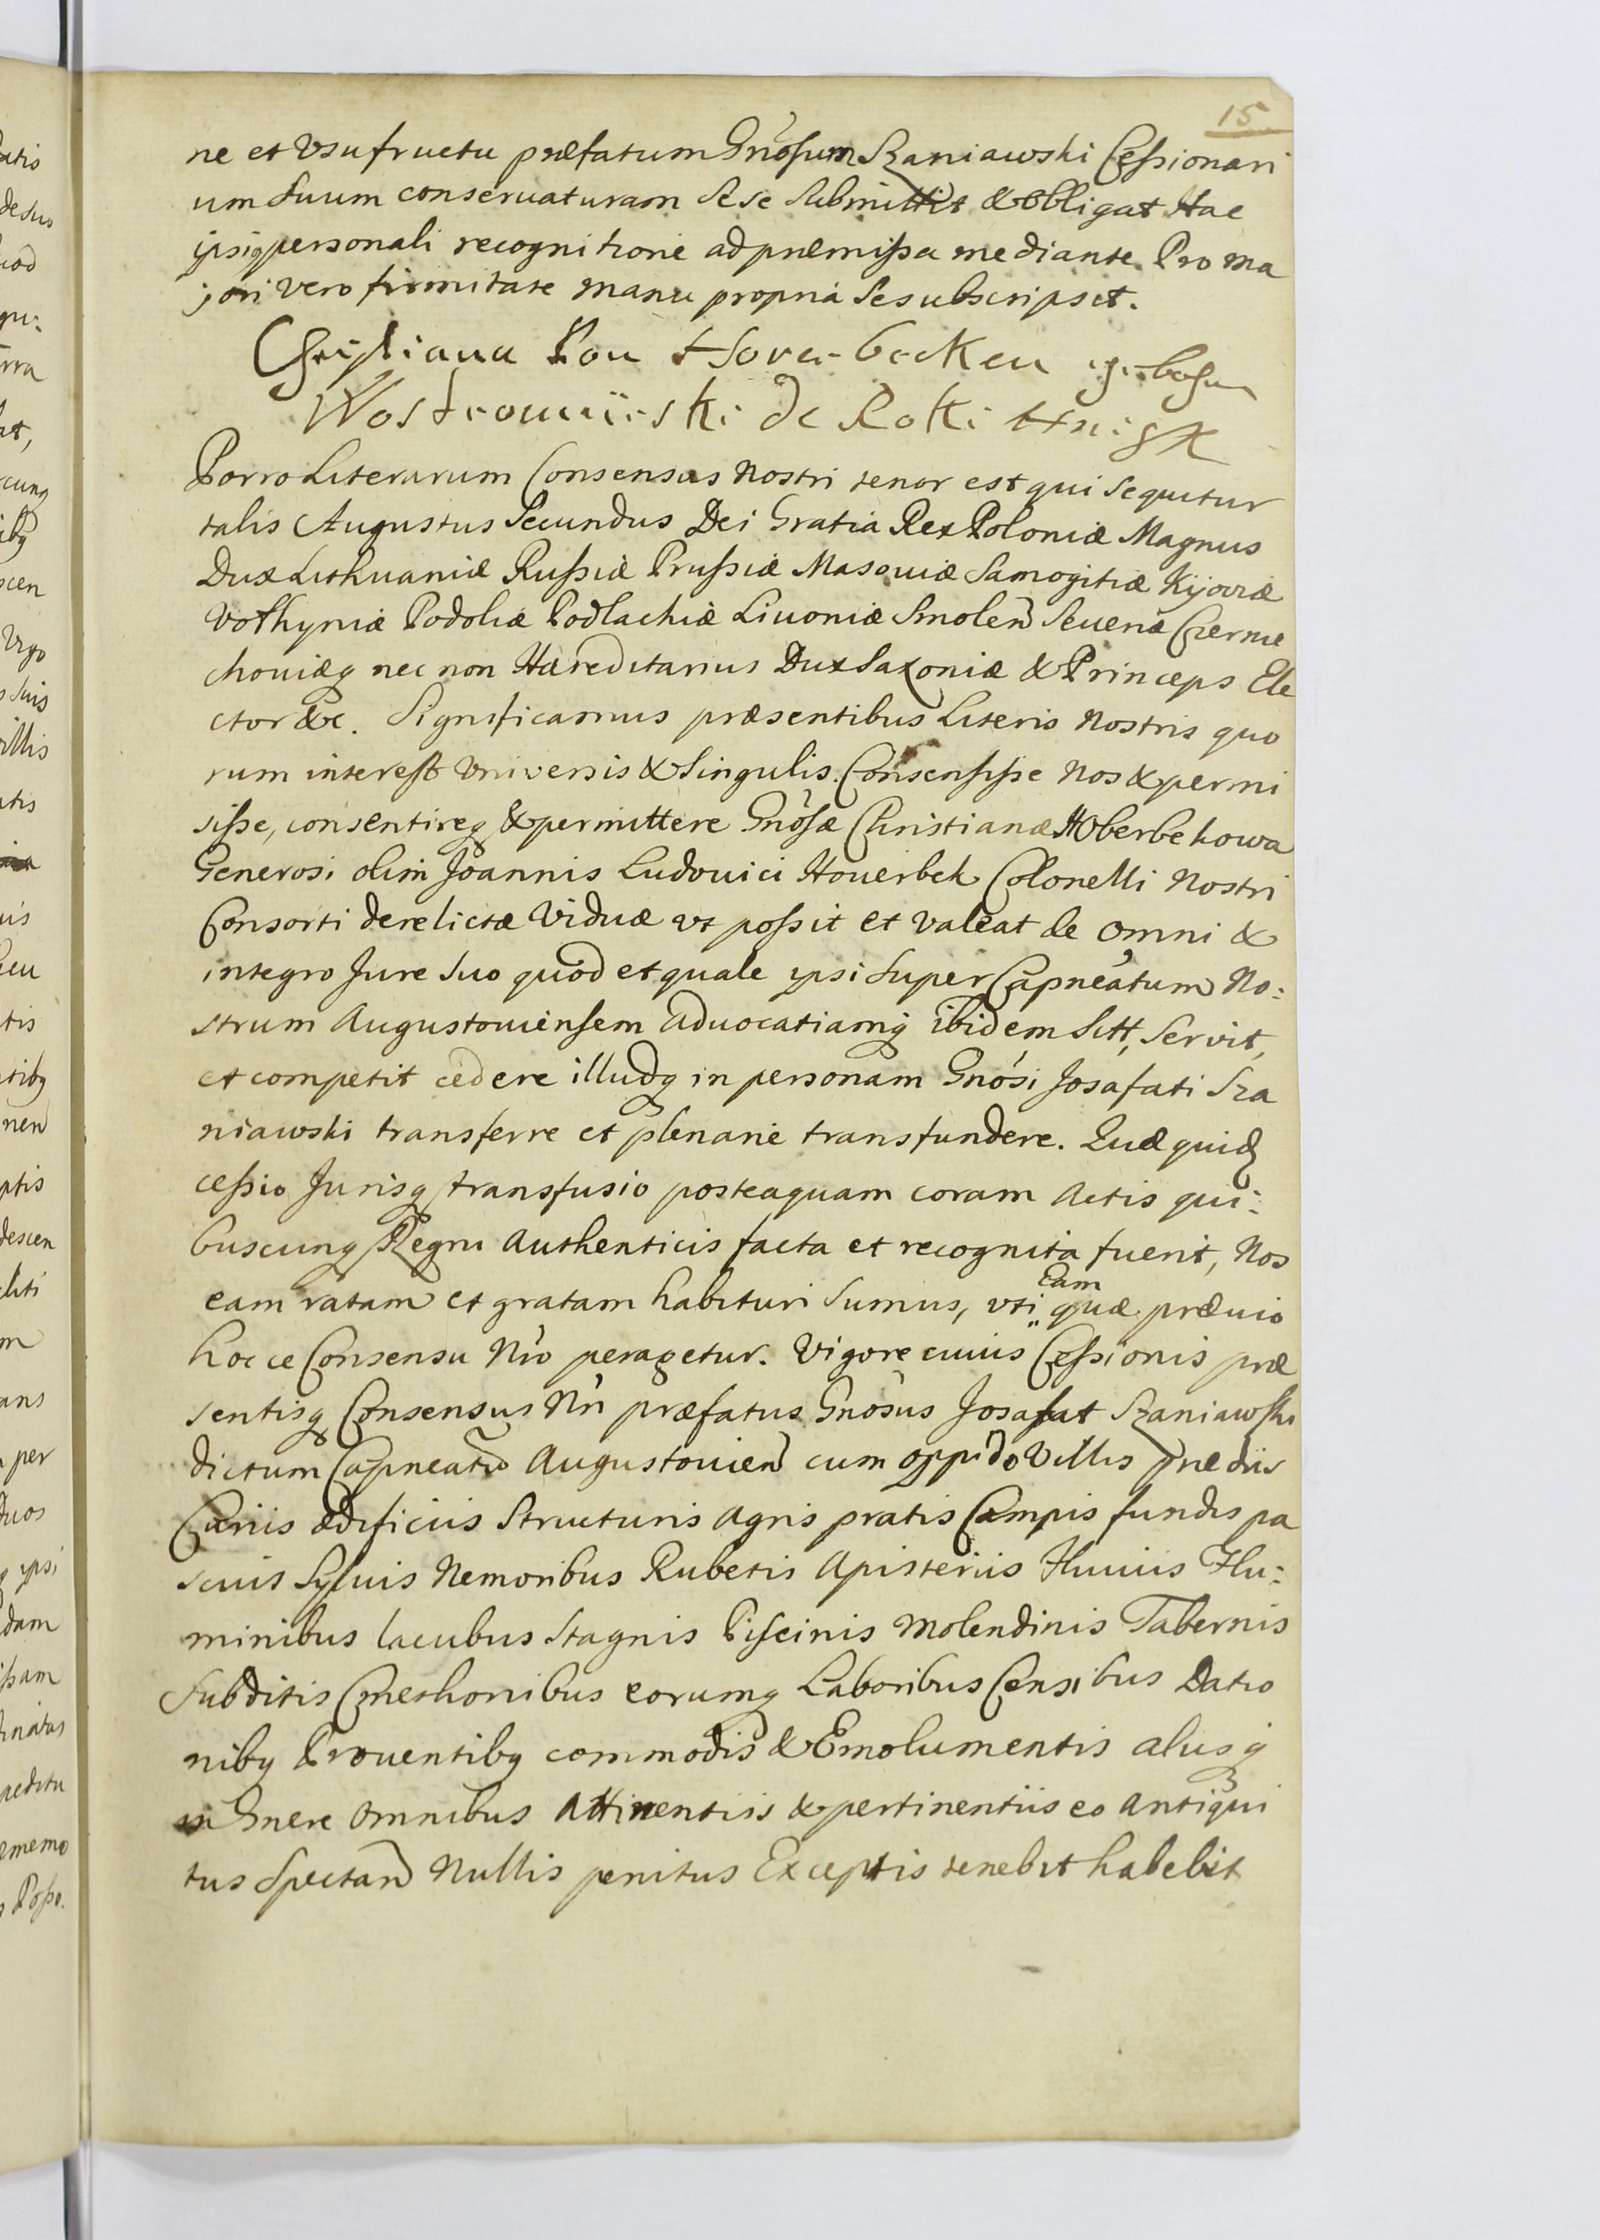 15
ne et Vsufructu præfatum Gnosum Szaniawski Cessionari
um suum conseruaturam sese submittit & obligat Hac
ipsiq personali recognitione ad præmissa mediante. Pro ma
jori vero firmitate manu propria se subscripsit.
Christiana Von Hover-becken
Wostrowuirski de
Porro Literarum Consensus Nostri tenor est qui sequitur
talis Augustus Secundus Dei Gratia Rex Poloniæ Magnus
Dux Lithuaniæ Russiæ Prussiæ Masouiæ Samogitiæ Kijoviæ
Volhyniæ Podoliæ Podlachiæ Liuoniæ Smolen Seueriæ Czernie
chouiæq nec non Hæreditarius Dux Saxoniæ & Princeps Ele
ctor &c. Significamus præsentibus Literis Nostris quo
rum interest Vniversis & Singulis. Consensisse Nos & permi
sisse, consentireq & permittere Gnosæ Christianæ Hoberbekowa
Generosi olim Joannis Ludouici Houerbek Colonelli Nostri
Consorti derelictæ Viduæ vt possit et valeat de omni &
integro Jure Suo quod et quale ipsi super Capneatum No:
strum Augustouiensem Aduocatiamq ibidem sitt, Servit,
et competit cedere illudq in personam Gnosi Josafati Sza
niawski transferre et plenarie transfundere. Quæ quid
cessio Jurisq transfusio posteaquam coram Actis qui:
buscunq Regni Authenticis facta et recognita fuerit, Nos
eam ratam et gratam habituri sumus, vti quæ præuio
Eam
hocce Consensu Nro peragetur. Vigore cuius Cessionis præ
sentisq Consensus Nri præfatus Gnosus Josafat Szaniawski
dictum Capneatu Augustouien cum oppido Villis prædiis
Curiis ædificiis Structuris Agris pratis Campis fundis pa
scuis Sylvis Nemoribus Rubetis Apisteriis Fluuiis Flu:
minibus lacubus Stagnis Piscinis Molendinis Tabernis
Subditis Cmethonibus eorumq Laboribus Censibus Datio
nibq Prouentibq commodis & Emolumentis aliisq
in Gnere omnibus Attinentiis & pertinentiis eo Antiqui
tus Spectan Nullis penitus Exceptis tenebit habebit